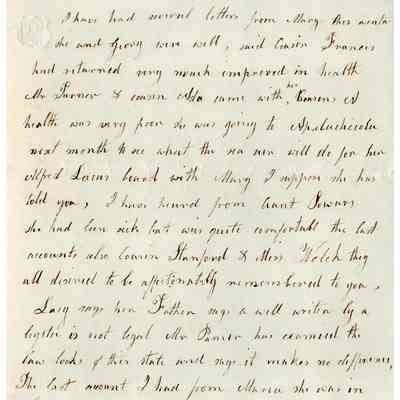 I have had several letters from Mary this winter
she and Georg were well, said Cousin Francis
had returned very much improved in health
Mr Turner & cousin Ada came with her, Cousens A
health was very poor she was going to Apaluchicola
next month to see what the sea air will do for her
Alfred Lucas board with Mary I suppose she has
told you, I have heard from Aunt Towars
she had been sick but was quite comfortable the last
accounts also Cousin Stanford & Mrs Welch they
all desired to be affectionately remembered to you,
Lucy says her Father says a will writen by a
legatee is not legal Mr Turner has examined the
law books of this state and says it makes no difference,
The last account I had from Maria she was in